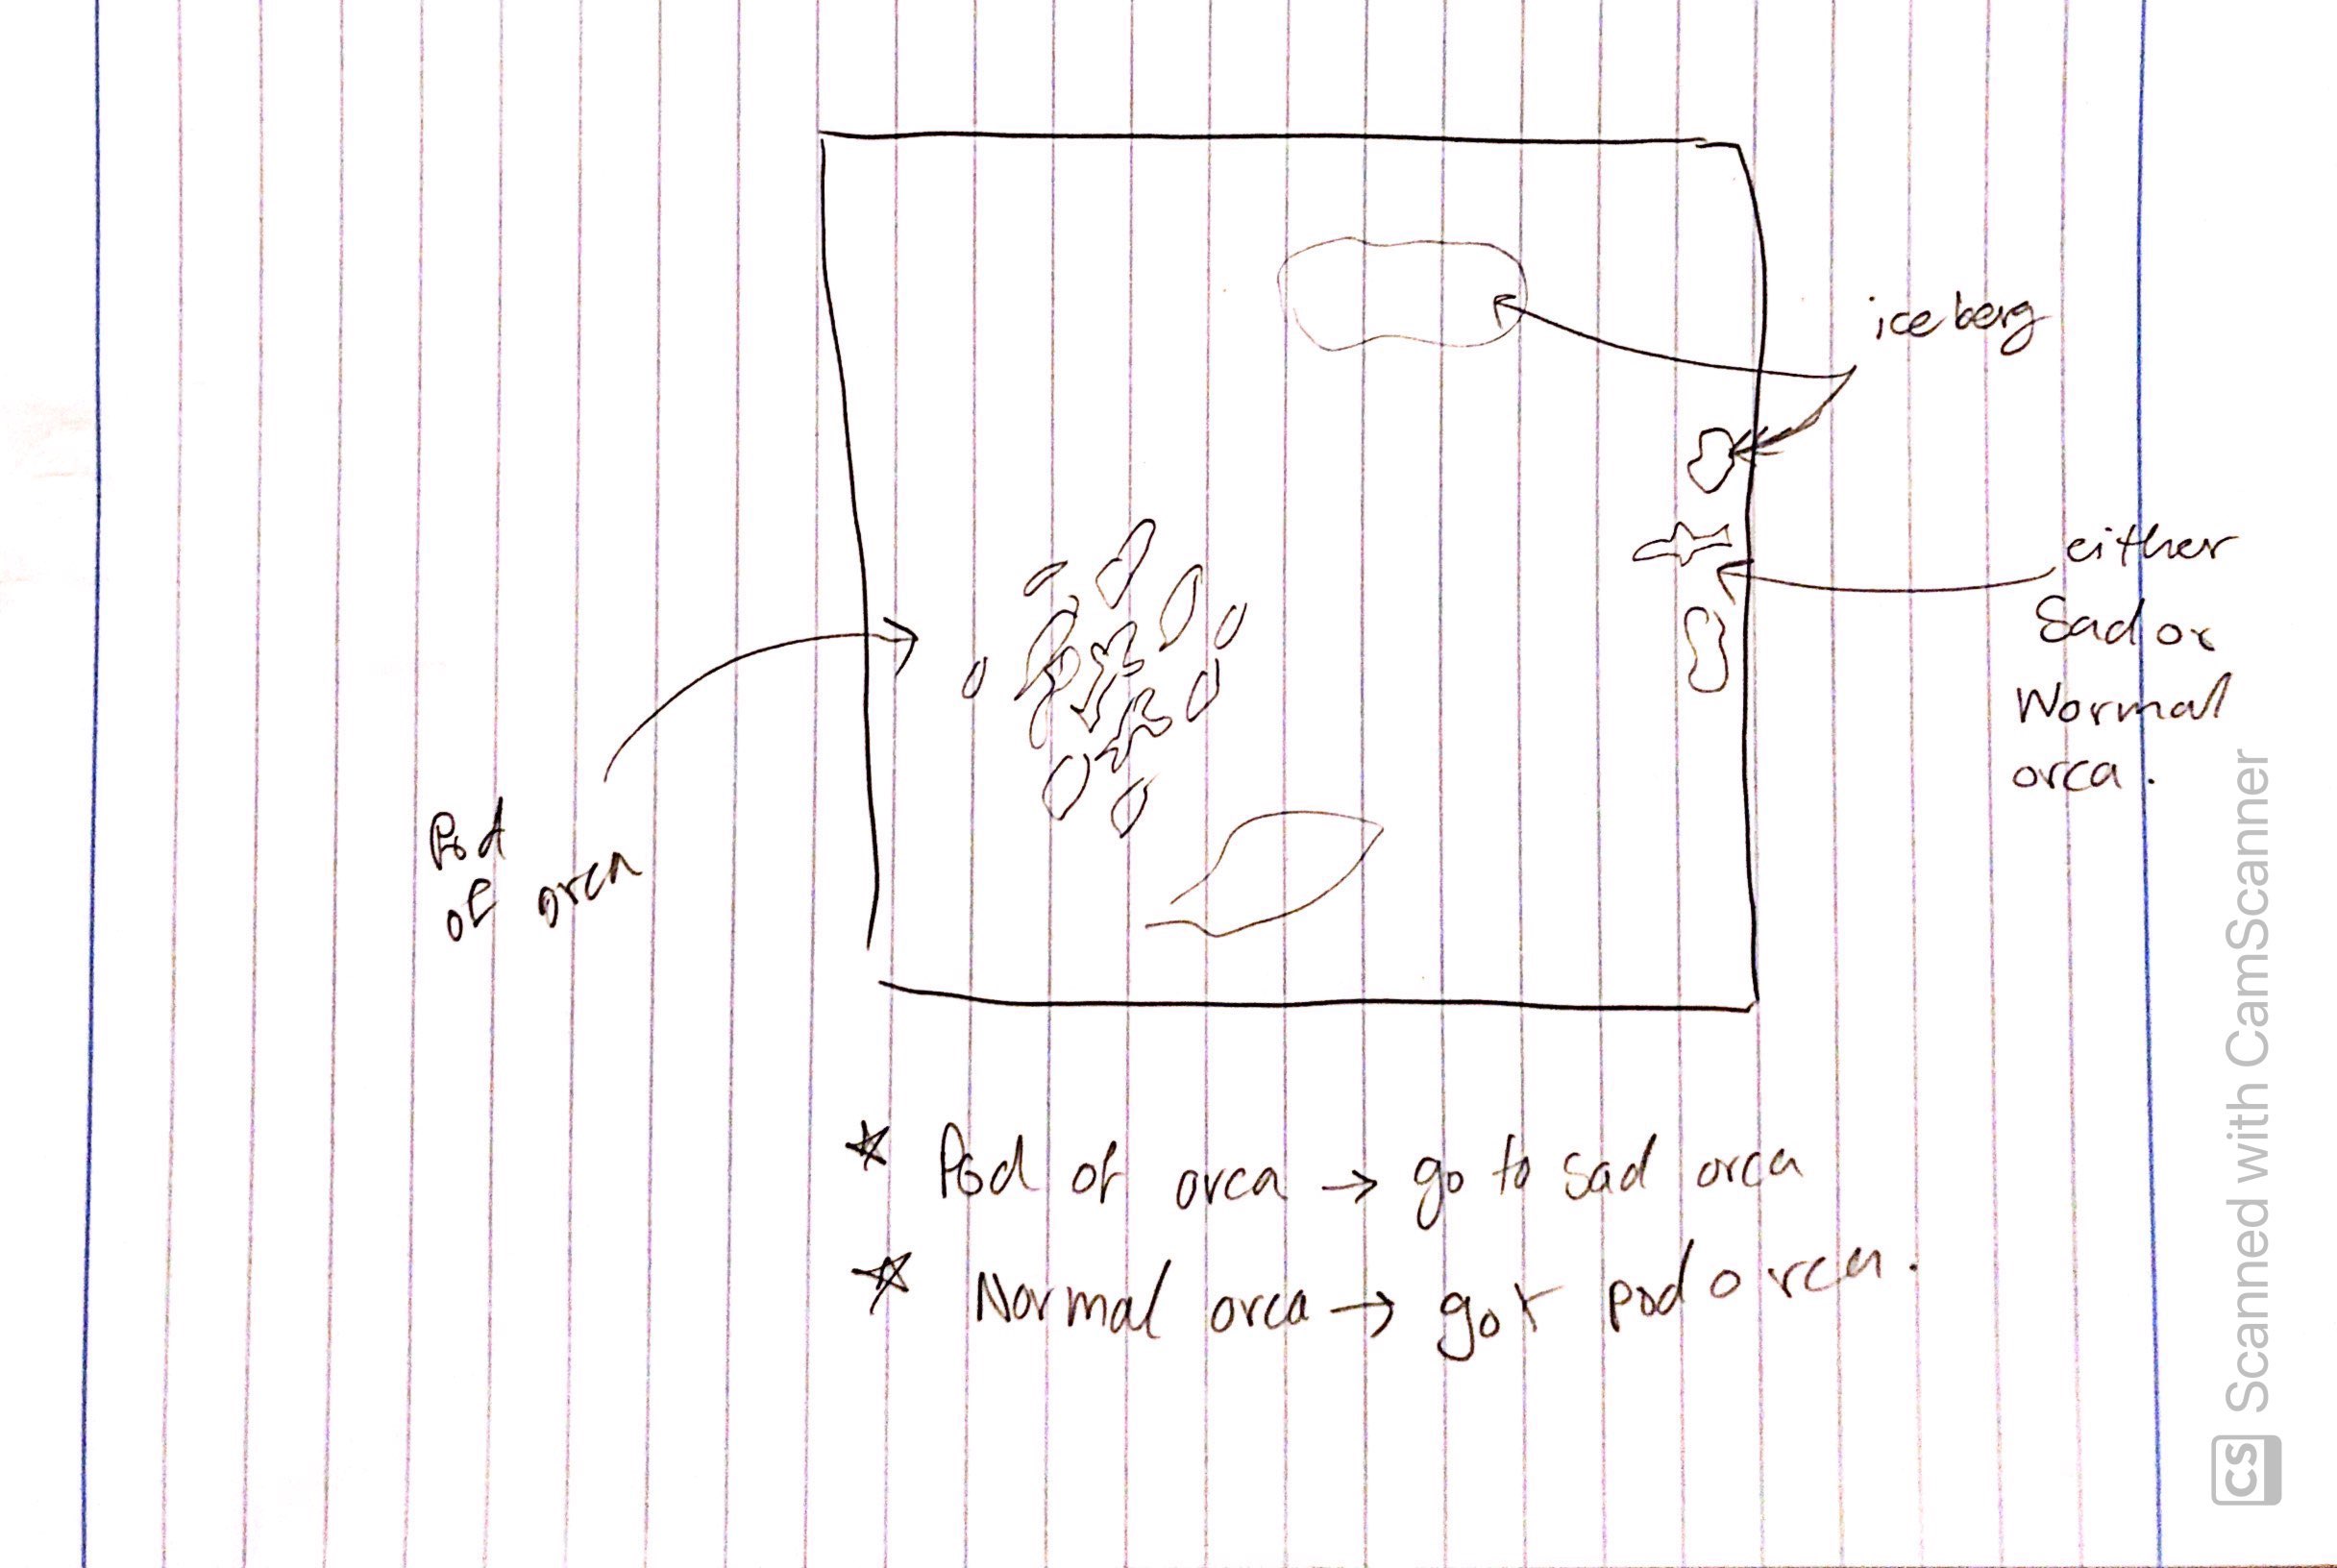 iceberg
either
Sad or
Normal
orca.
Pod
of orca
☆ Pod of orca → go to sad orca
☆ Normal orca → got pod orca.
CS Scanned with CamScanner